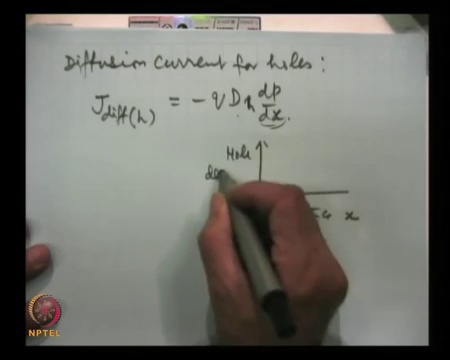 Diffusion Current for holes :
J diff(h) = - q D h dp/dx.
Hole
de
x
NPTEL